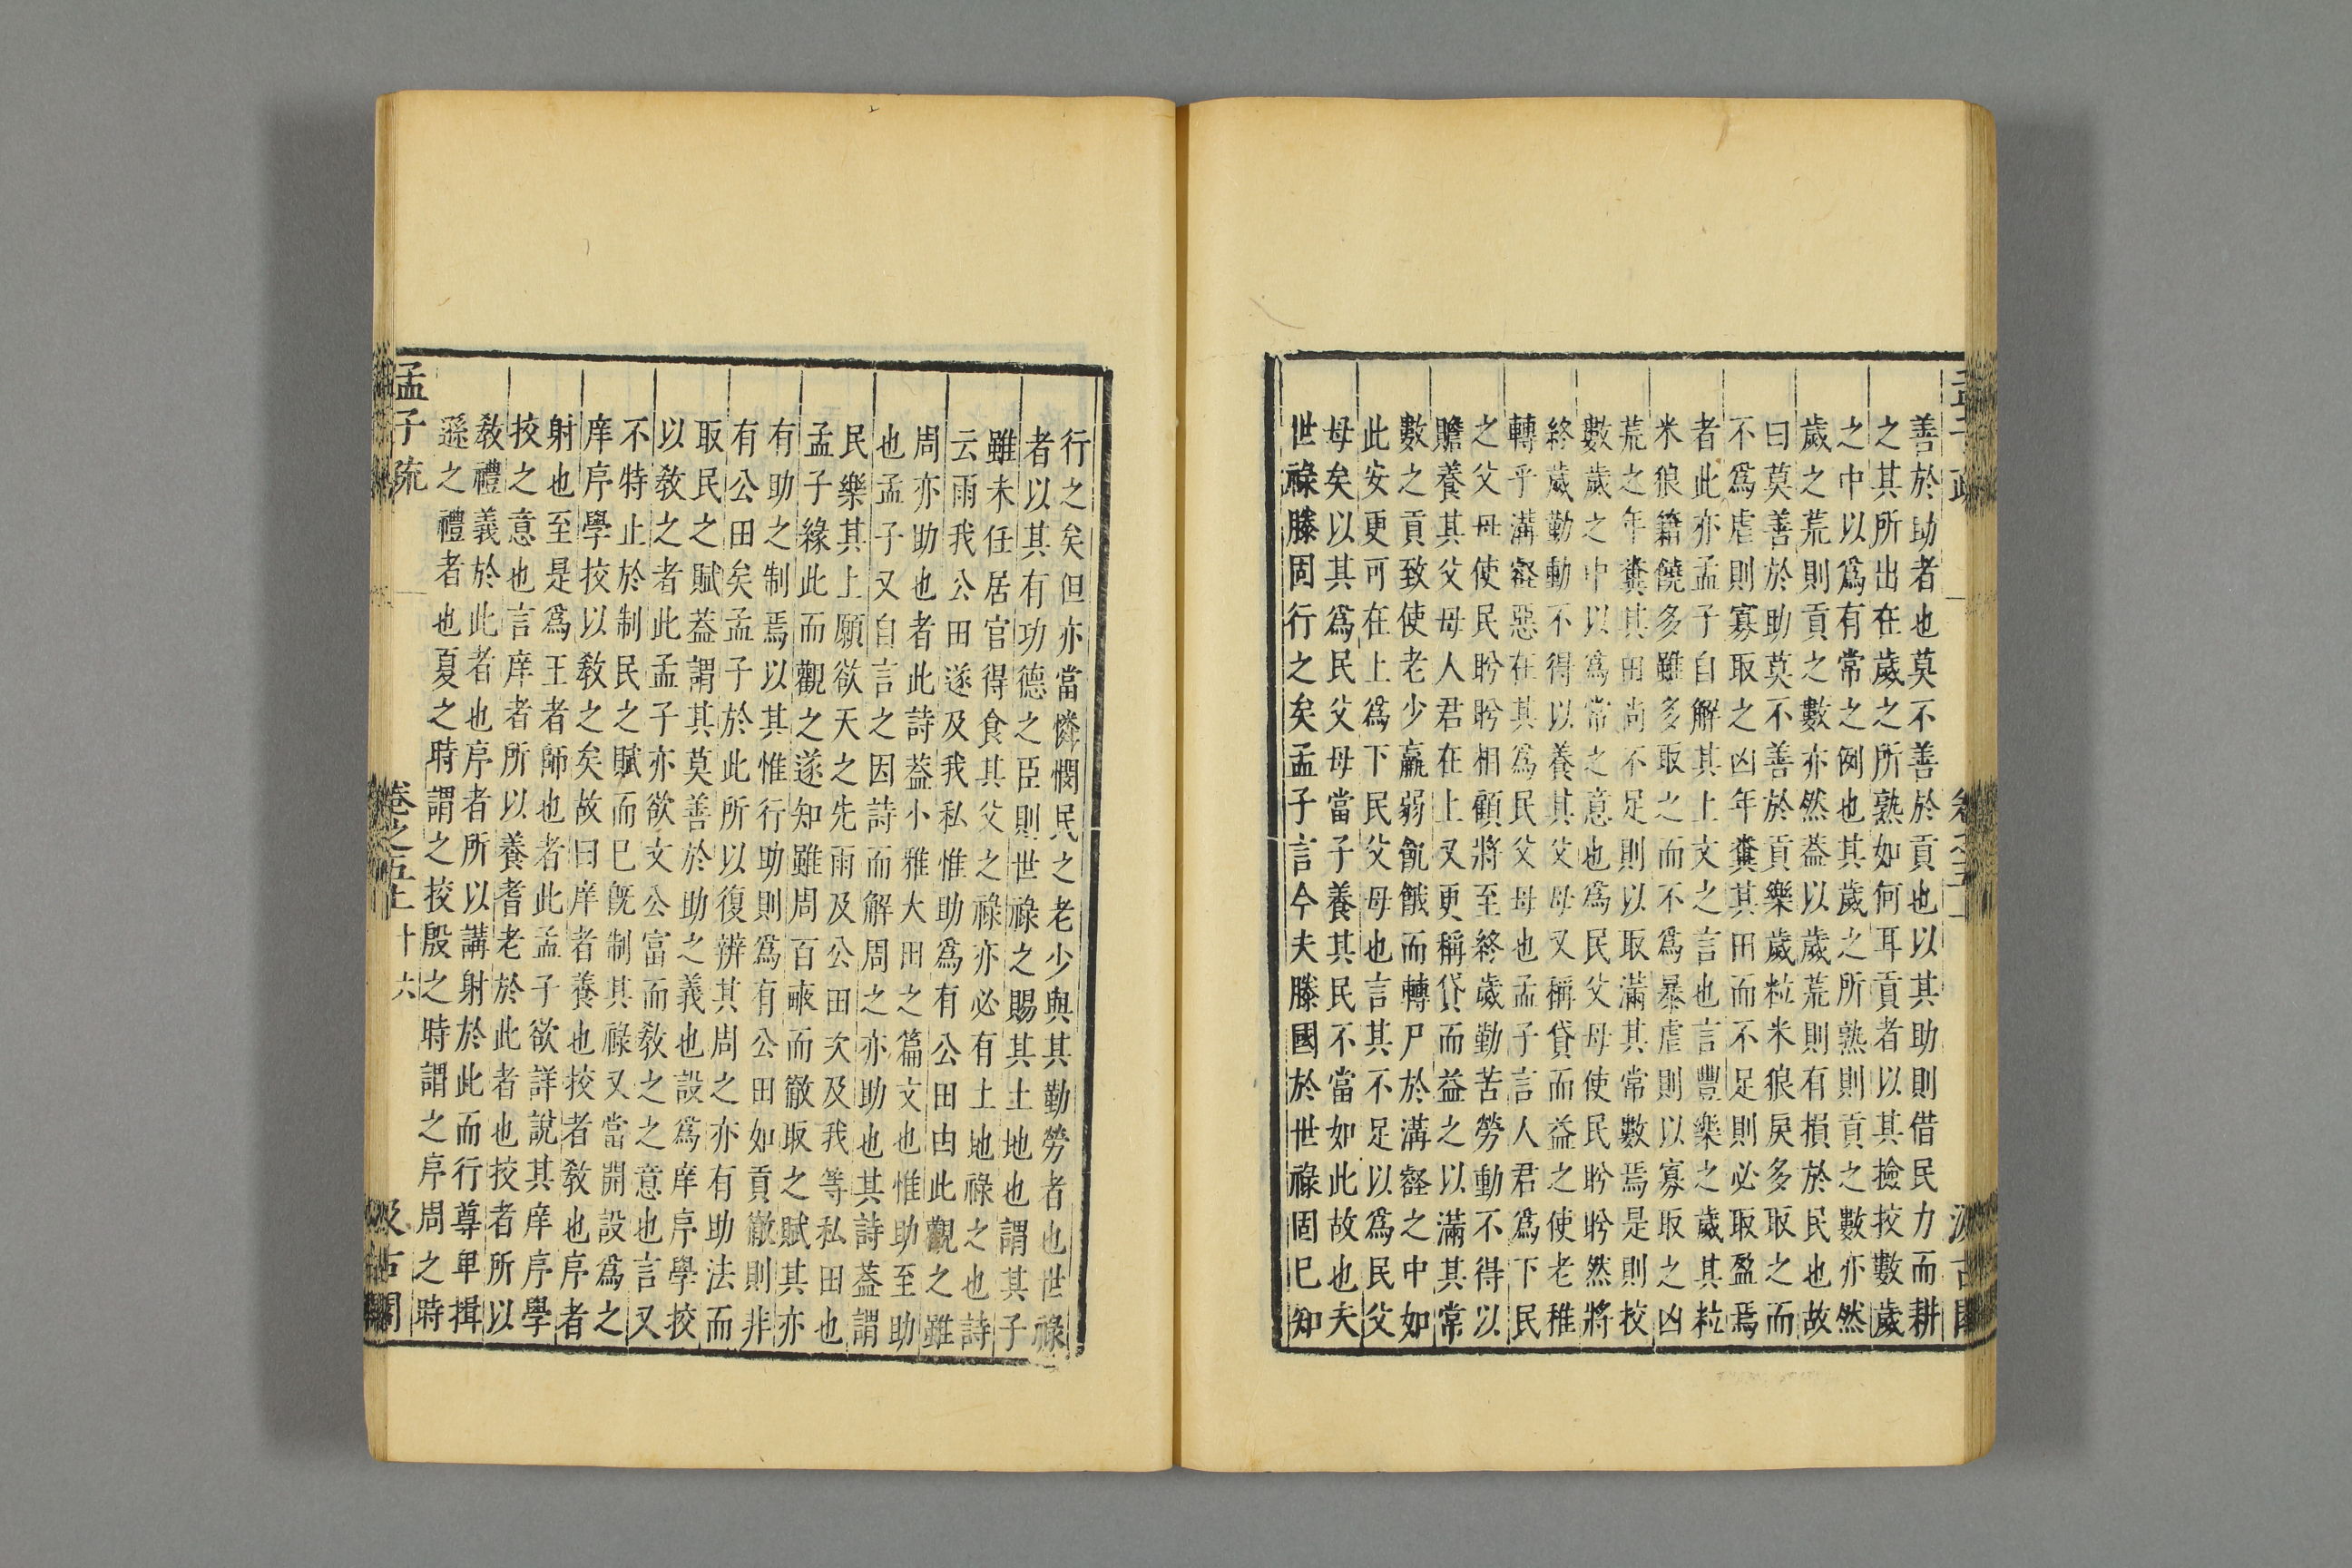 善於助者也莫不善於貢也以其助則借民力而耕
之其所出在歲之所熟如何耳貢者以其撿挍數歲
之中以爲有常之例也其歲之所熟則貢之數亦然
歲之荒則貢之數亦然葢以歲荒則有損於民也故
曰莫善於助莫不善於貢樂歲粒米狼戾多取之而
不爲虐則寡取之凶年糞其田而不足則必取盈焉
者此亦孟子自解其上文之言也言豐樂之歲其粒
米狼籍饒多雖多取之而不爲暴虐則以寡取之凶
荒之年糞其田尚不足則以取滿其常數焉是則挍
數歲之中以爲常之意也爲民父母使民盻盻然將
終歲勤動不得以養其父母又稱貸而益之使老稚
轉乎溝壑惡在其爲民父母也孟子言人君爲下民
之父母使民盻盻相顧將至終歲勤苦勞動不得以
贍養其父母人君在上又更稱貸而益之以滿其常
數之貢致使老少羸弱飢餓而轉尸於溝壑之中如
此安更可在上爲下民父母也言其不足以爲民父
母矣以其爲民父母當子養其民不當如此故也夫
世祿滕固行之矣孟子言今夫滕國於世祿固巳知
行之矣但亦當憐憫民之老少與其勤勞者也世祿
者以其有功德之臣則世祿之賜其土地也謂其子
雖未任居官得食其父之祿亦必有土地祿之也詩
云雨我公田遂及我私惟助爲有公田由此觀之雖
周亦助也者此詩葢小雅大田之篇文也惟助至助
也孟子又自言之因詩而解周之亦助也其詩葢謂
民樂其上願欲天之先雨及公田次及我等私田也
孟子緣此而觀之遂知雖周百畝而徹取之賦其亦
有助之制焉以其惟行助則爲有公田如貢徹則非
有公田矣孟子於此所以復辨其周之亦有助法而
取民之賦葢謂其莫善於助之義也設爲庠序學挍
以敎之者此孟子亦欲文公富而敎之之意也言又
不特止於制民之賦而巳旣制其祿又當開設爲之
庠序學挍以敎之矣故曰庠者養也挍者敎也序者
射也至是爲王者師也者此孟子欲詳說其庠序學
挍之意也言庠者所以養耆老於此者也挍者所以
敎禮義於此者也序者所以講射於此而行尊卑揖
遜之禮者也夏之時謂之挍殷之時謂之序周之時
孟子疏
卷之五上
十六
汲古閣